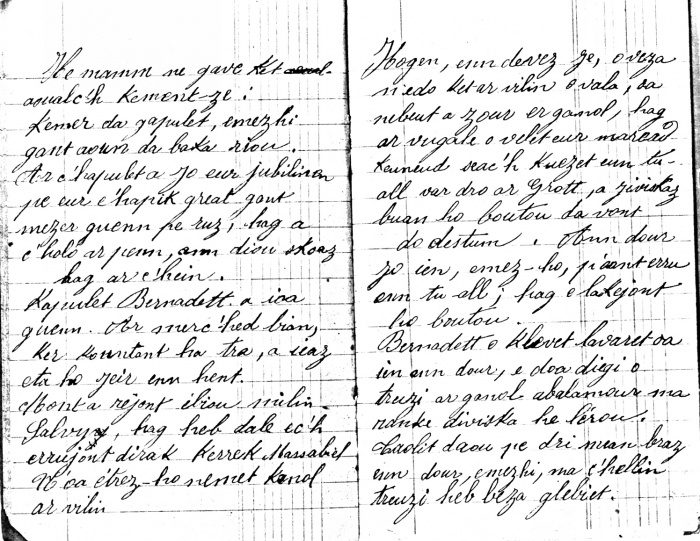 He mamm ne gave ket
aoualc'h kement-ze :
Kemer da gapulet, emezhi
gant aoun da baka riou.
Ar c'hapulet a zo eur jubilinen
pe eur c'hapik great gant
mezer guenn pe ruz, hag a
c'holo ar penn, ann diou skoaz
hag ar c'hein.
Kapulet Bernadett a ioa
guenn. Ar merc'hed bian,
ker kountant ha tra, a ieaz
eta ho zeir enn hent.
Mont a rejont
Salvy, hag heb dale ec'h
errujont dirak Kerrek Massabiel
N'oa étrez-ho nemet kanol
ar vilin
Hogen, enn devez ze, o veza
n'edo ket ar vilin o vala, oa
nebeut a zour er ganol, hag
ar vugale o velet eur maread
keuneud seac'h kuezet enn tu-
all var dro ar Grott, a ziviskaz
buan ho boutou da vont
do destum. Ann dour
zo ien, emez-ho, p'aont erru
enn tu all; hag e lakejont
ho boutou.
Bernadett o klevet lavaret oa
ien ann dour, e doa diegi o
treuzi ar ganol abalamour ma
ranke diviska he lérou.
Taolit daou pe dri mean braz
enn dour, emezhi, ma c'hellin
treuzi heb beza glebiet.